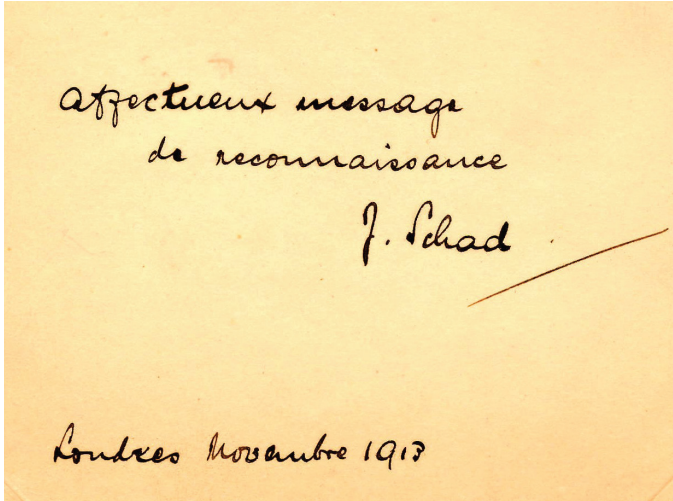 affectueux message
de reconnaissance
J. Schad
Londres Novembre 1913